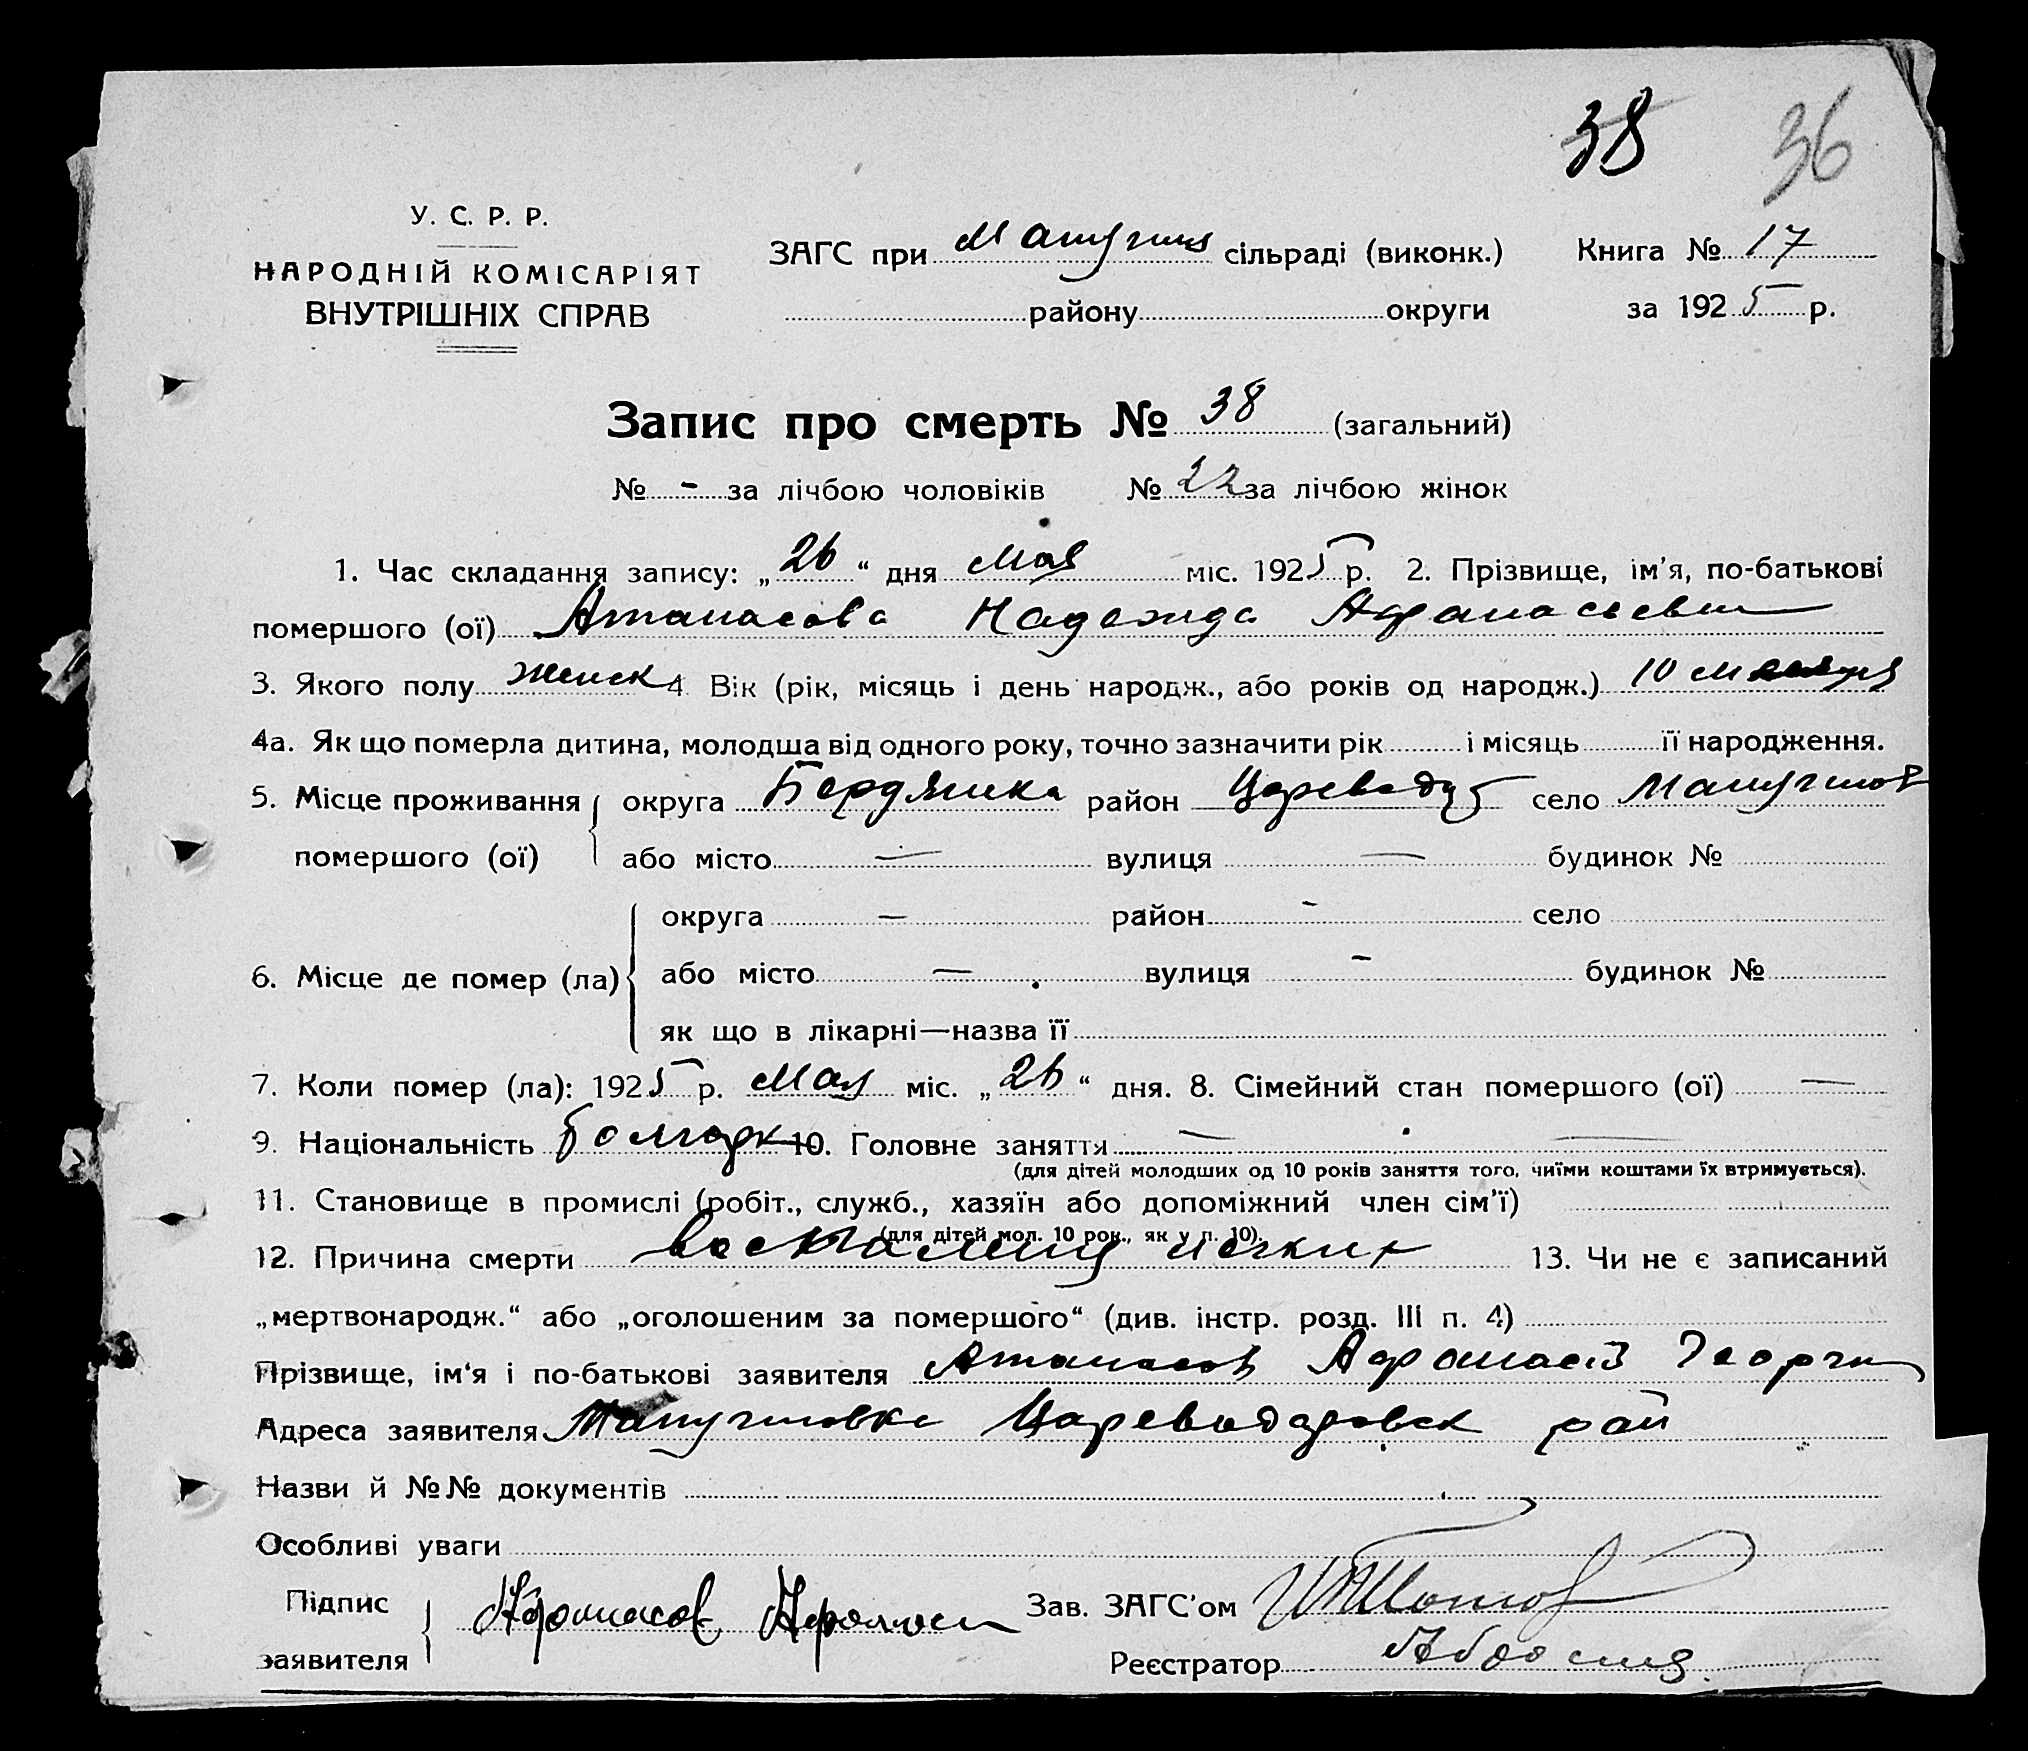 38 36
У. С. Р. Р.
НАРОДНІЙ КОМІСАРІЯТ
ВНУТРІШНІХ СПРАВ
ЗАГС при сільраді (виконк.) Книга № 17
району округи за 1925 р.
Запис про смерть № 38 (загальний)
№ - за лічбою чоловіків № 22 за лічбою жінок
1. Час складання запису: „26“ дня Мая міс. 1925 р. 2. Прізвище, ім’я, по-батькові
помершого (ої) Атанасова Надежда Афанасьевн
3. Якого полу женск 4. Вік (рік, місяць і день народж., або років од народж.) 10 месяцев
4а. Як що померла дитина, молодша від одного року, точно зазначити рік і місяць її народження.
5. Місце проживання округа Бердянска район село
помершого (ої) або місто — вулиця — будинок №
округа — район - село
6. Місце де помер (ла) або місто — вулиця - будинок №
як що в лікарні—назва її
7. Коли помер (ла): 1925 р. Мая міс. „26“ дня. 8. Сімейний стан помершого (ої) —
9. Національність болгарк 10. Головне заняття — —
(для дітей молодших од 10 років заняття того, чиїми коштами їх втримується).
11. Становище в промислі (робіт., служб., хазяїн або допоміжний член сім’ї)
(для дітей мол. 10 рок., як у п. 10).
12. Причина смерти воспаления легких 13. Чи не є записаний
„мертвонародж.“ або „оголошеним за помершого“ (див. інстр. розд. III п. 4)
Прізвище, ім‘я і по-батькові заявителя Атанасов Афанасий Георги
Адреса заявителя Цареводаровск рай
Назви й №№ документів
Особливі уваги
Підпис Афанасов Зав. ЗАГС’ом
заявителя Реєстратор